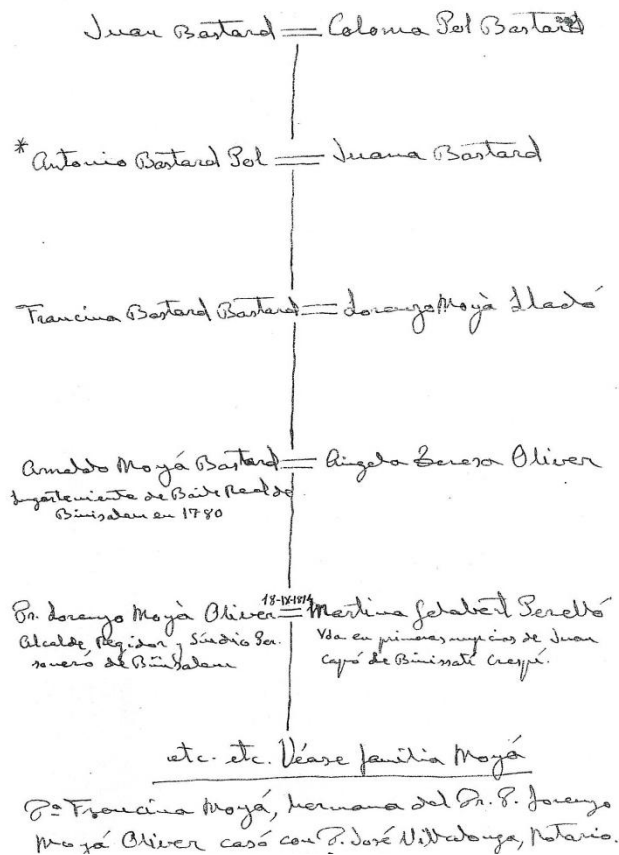 Juan Bastard = Coloma Pol Bastard
* Antonio Bastard Pol = Juana Bastard
Francina Bastard Bastard = Lorenzo Moyà Lladó
Arnaldo Moyá Bastard = Angela Teresa Oliver
Lugarteniente de Baile Real de
Binisalem en 1780
18-IX-1814
Dr. Lorenzo Moyà Oliver = Martina Gelabert Perelló
Alcalde, Regidor y Síndic Per-
sonero de Binisalem
Vda en primeras nupcias de Juan
Capó de Binissatí Crespí.
etc. etc. Véase familia Moyá
Dª Francina Moyá, hermana del Dr. D. Lorenzo
Moyá Oliver casó con D. José Villalonga, Notario.